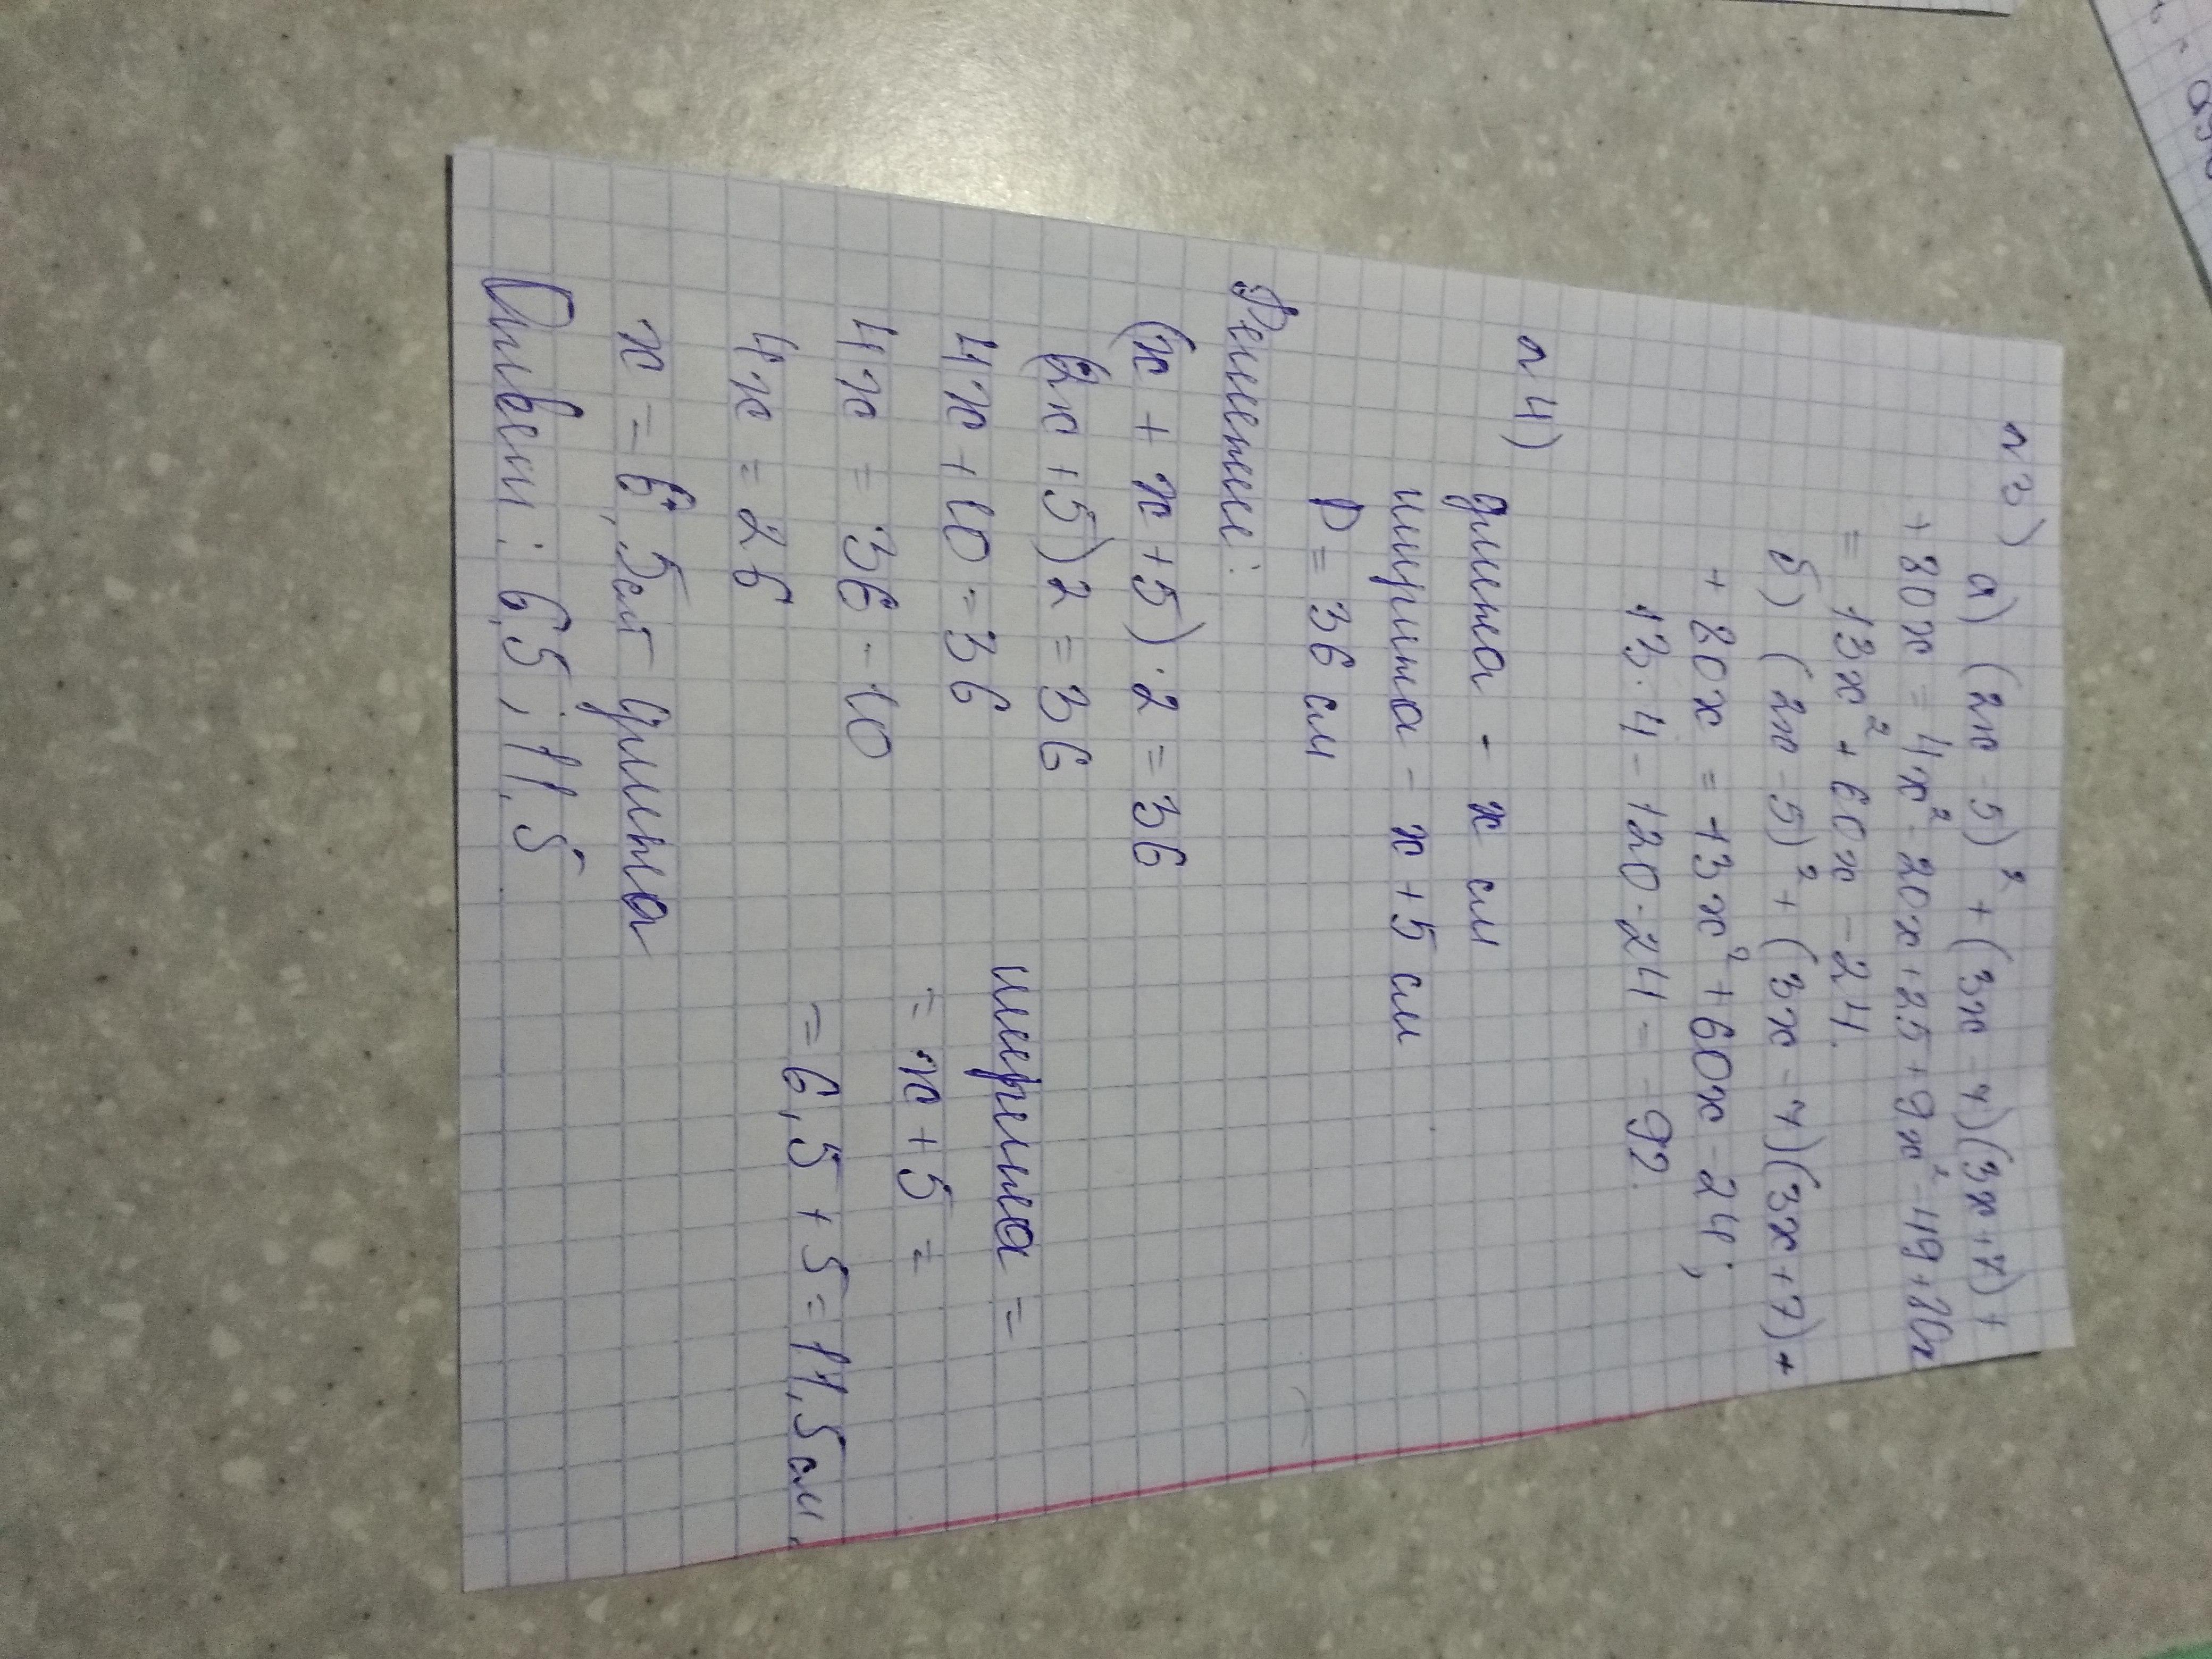 n 3) а) (2x - 5)² + (3x - 7)(3x + 7) +
+ 80x = 4x² - 20x + 25 + 9x² - 49 + 80x
= 13x² + 60x - 24.
б) (2x - 5)² + (3x - 7)(3x + 7) +
+ 80x = 13x² + 60x - 24;
13 · 4 - 120 - 24 = - 92.
n 4)
длина - x см
ширина - x + 5 см
P = 36 см
Решение:
(x + x + 5) · 2 = 36
(2x + 5) 2 = 36
4x + 10 = 36
4x = 36 - 10
4x = 26
x = 6,5см - длина
ширина =
= x + 5 =
= 6,5 + 5 = 11,5 см.
Ответ: 6,5 ; 11,5